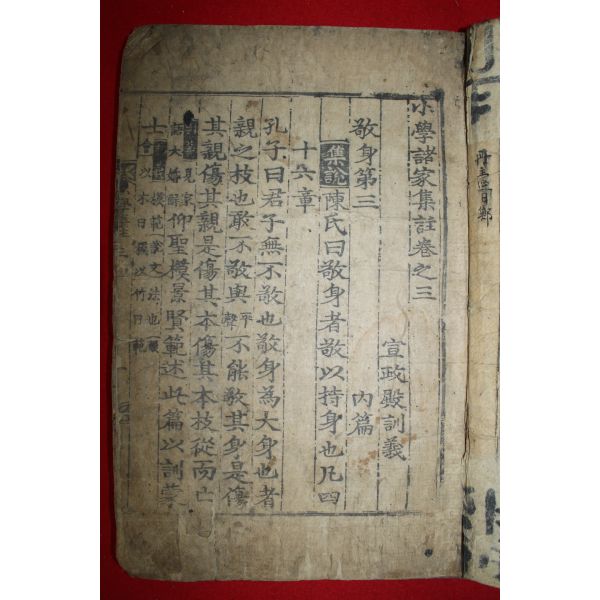 小學諸家集註卷之三
宣政殿訓義
敬身第三
內篇
集說 陳氏曰敬身者敬以持身也凡四
十六章
孔子曰君子無不敬也敬身爲大身也者
親之枝也敢不敬與平聲不能敬其身是傷
其親傷其親是傷其本傷其本枝從而亡
仰聖模景賢範述此篇以訓蒙
士